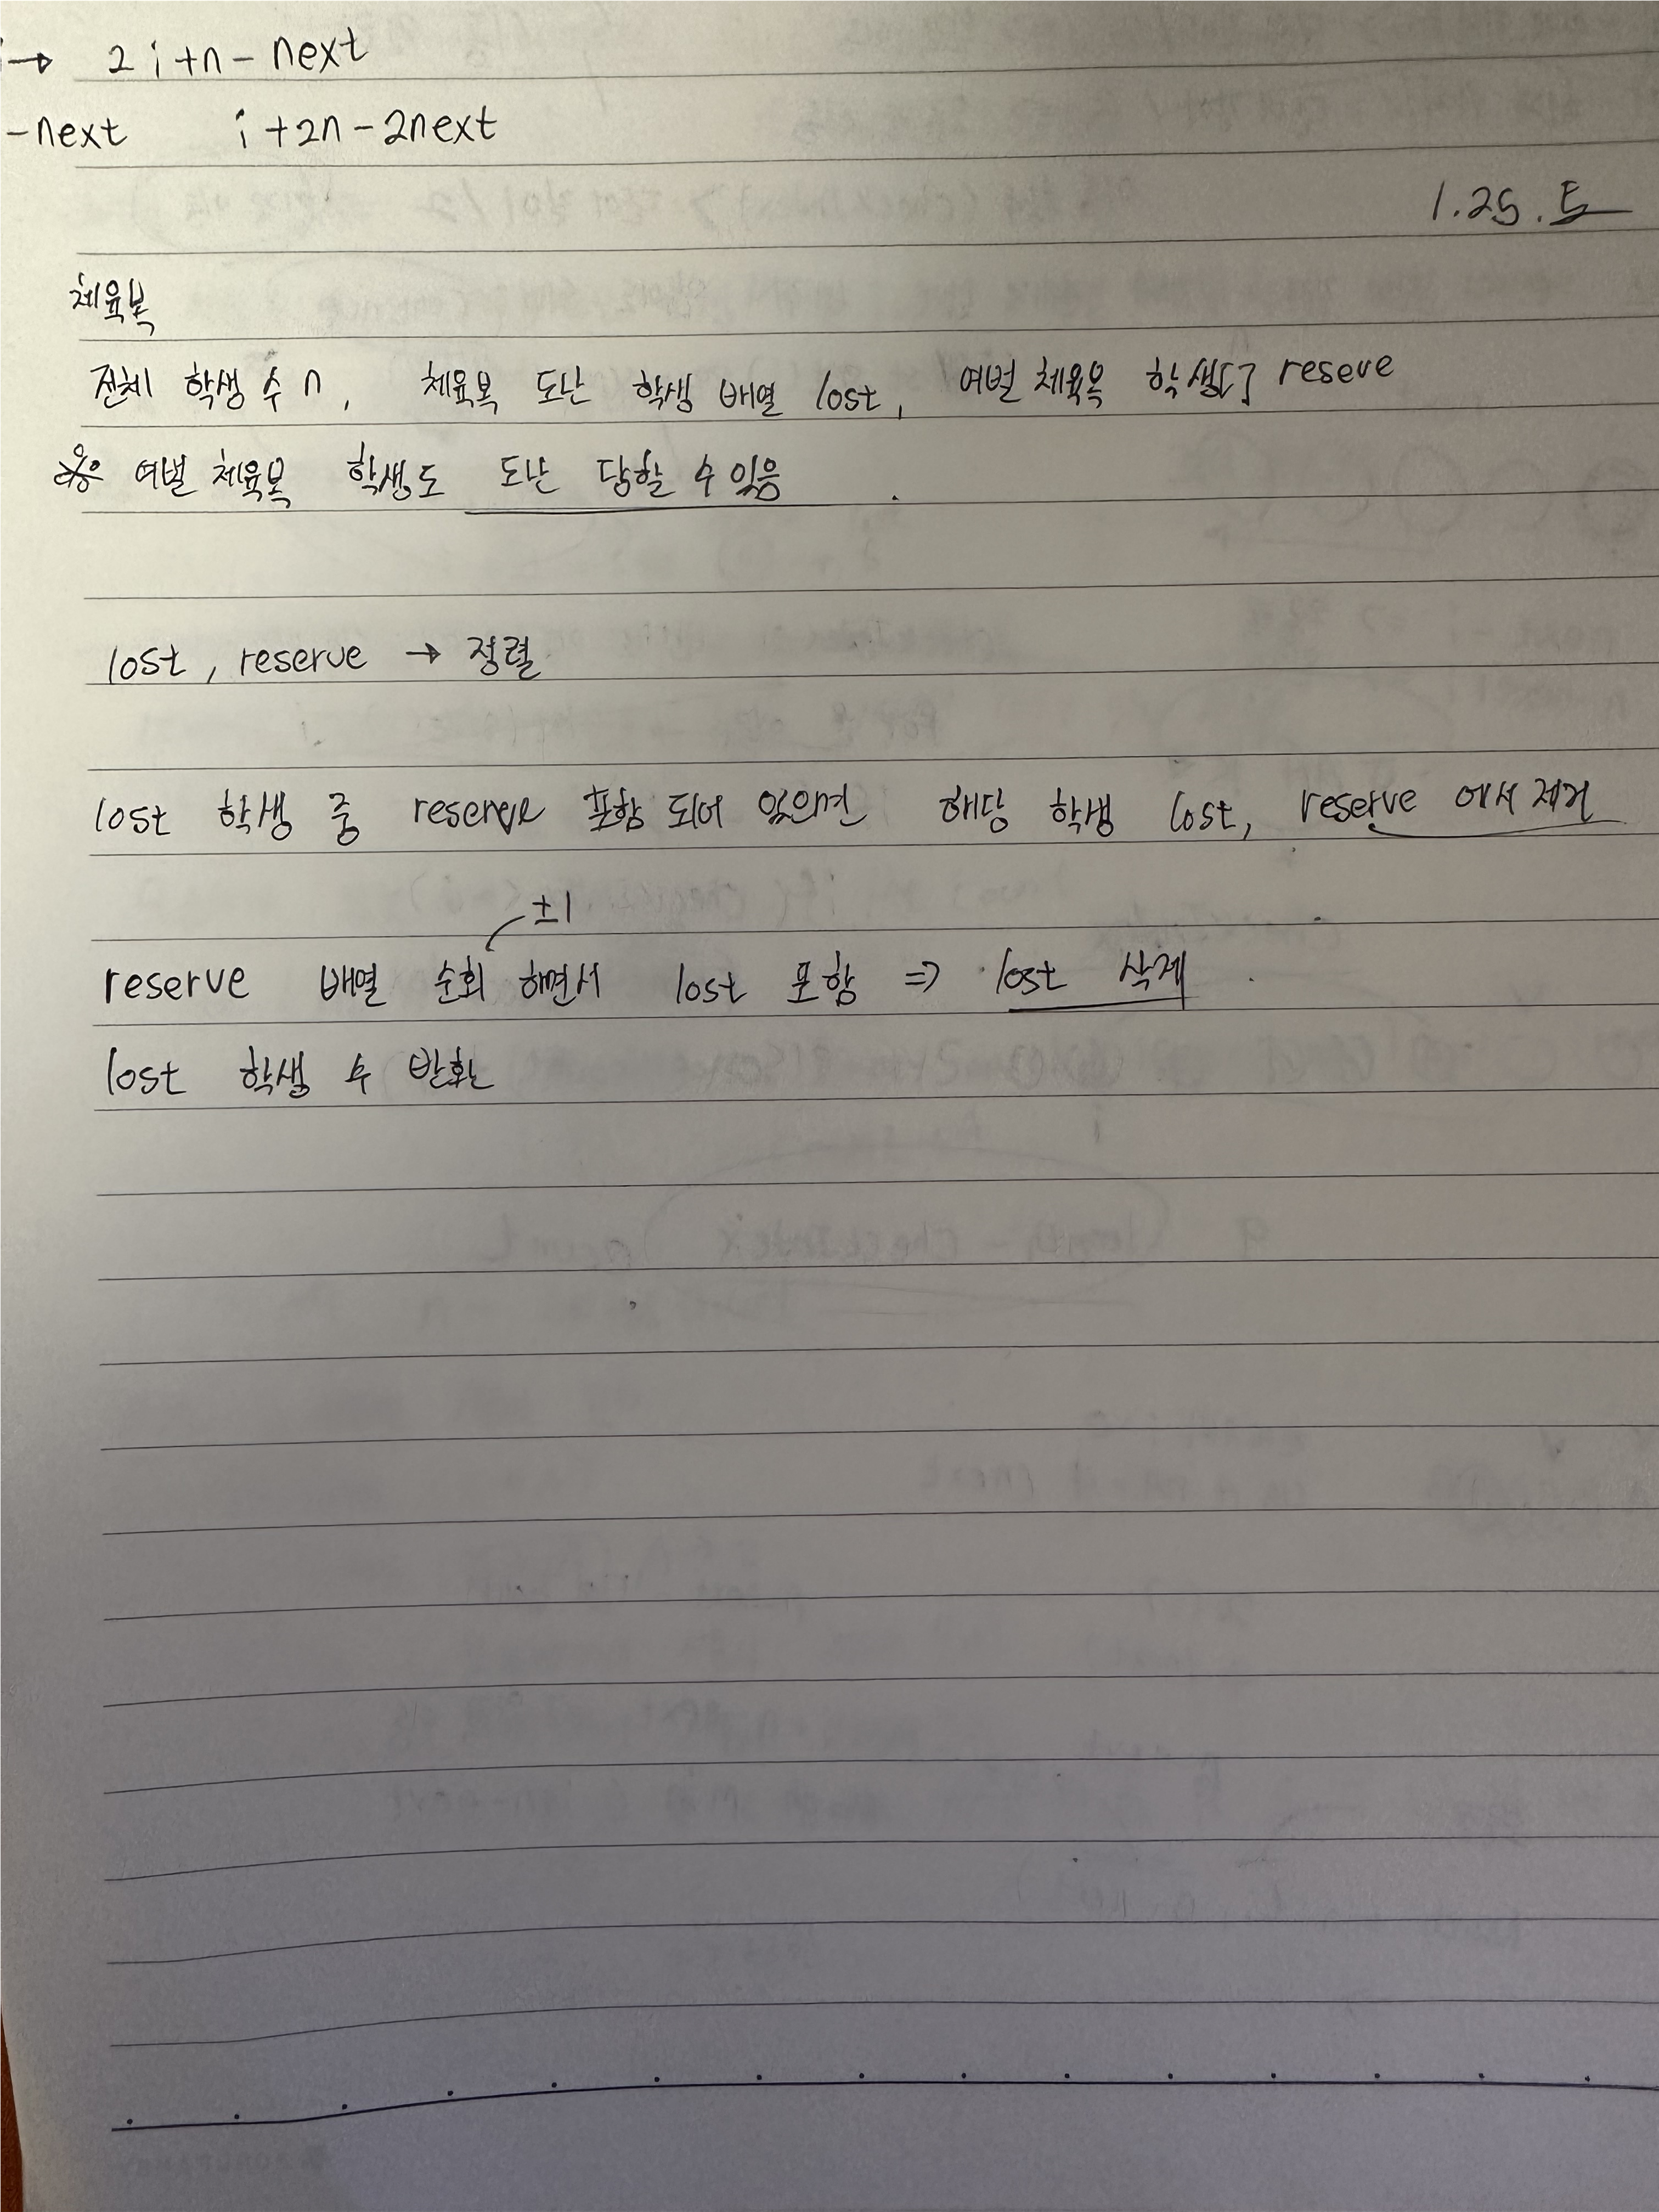 → 2i+n-next
-next i+2n-2next
1.25.토
체육복
전체 학생 수 n, 체육복 도난 학생 배열 lost, 여벌 체육복 학생 reseve
※ 여벌 체육복 학생도 도난 당할 수 있음
lost, reserve → 정렬
lost 학생 중 reserve 포함 되어 있으면 해당 학생 lost, reserve 에서 제거
±1
reserve 배열 순회 하면서 lost 포함 => lost 삭제
lost 학생 수 반환